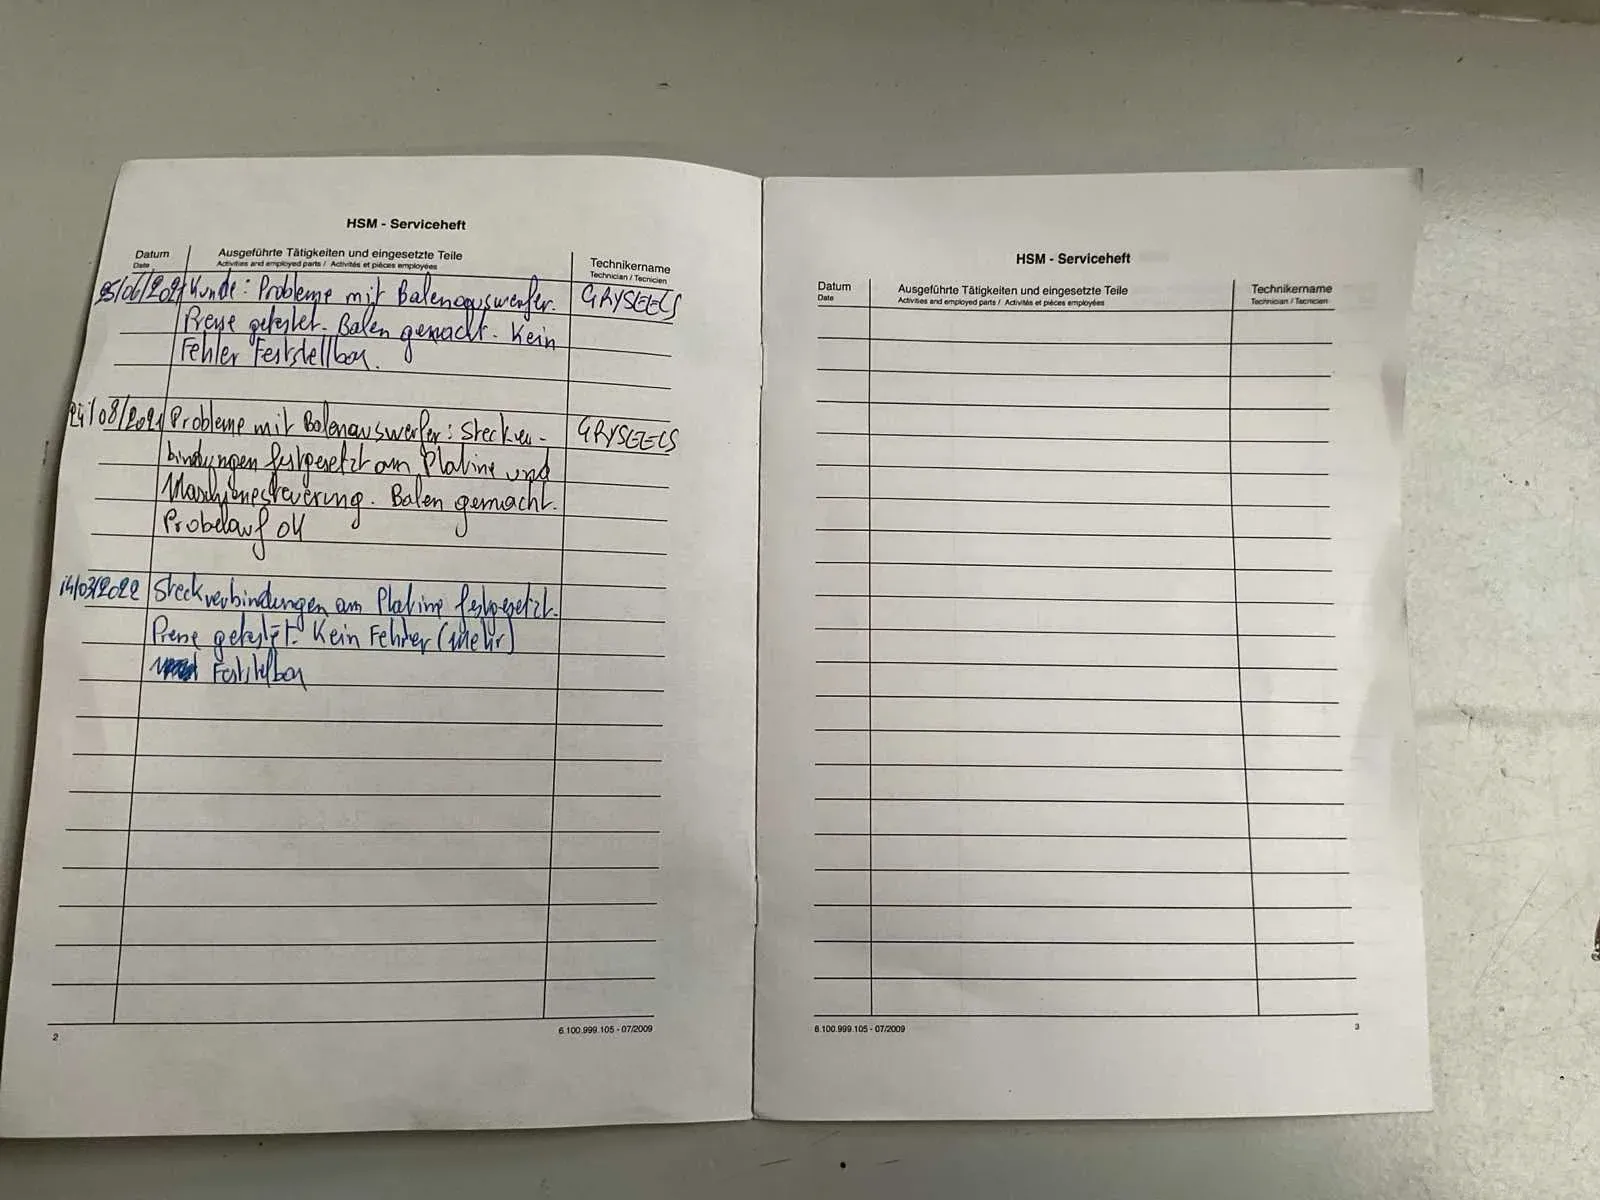 HSM - Serviceheft
Datum
Date
Ausgeführte Tätigkeiten und eingesetzte Teile
Activities and employed parts / Activités et pièces employées
Technikername
Technician / Tecnicien
25/06/2021 Kunde: Probleme mit Balenauswerfer. GRYSEELS
Presse getestet. Balen gemacht. Kein
Fehler Feststellbar.
24/08/2021 Probleme mit Balenauswerfer: Steckver-
GRYSEELS
bindungen festgesetzt am Platine und
Maschinesteuerung. Balen gemacht.
Probelauf OK
14/03/2022 Steckverbindungen am Platine festgesetzt.
Presse getestet. Kein Fehler (mehr)
Feststelbar
2
6.100.999.105 - 07/2009
HSM - Serviceheft
Datum
Date
Ausgeführte Tätigkeiten und eingesetzte Teile
Activities and employed parts / Activités et pièces employées
Technikername
Technician / Tecnicien
6.100.999.105 - 07/2009
3